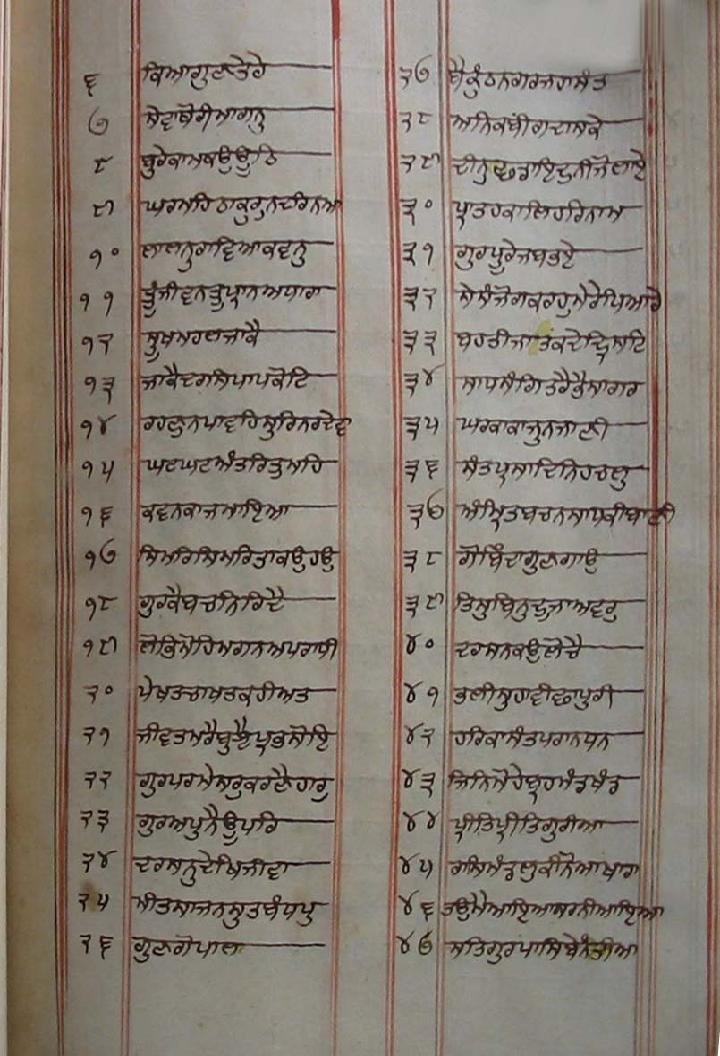 ੬ ਕਿਆਗੁਣਤੇਰੇ
੭ ਸੇਵਾਥੋਰੀਮਾਗਨੁ
੮ ਬੁਰੇਕਾਮਕਉਊਠਿ
੯ ਘਰਮਹਿਠਾਕੁਰੁਨਦਰਿਨਆ
੧੦ ਲਾਲਨੁਰਾਵਿਆਕਵਨੁ
੧੧ ਤੂੰਜੀਵਨਤੂਪ੍ਰਾਨਅਧਾਰਾ
੧੨ ਸੂਖਮਹਲਜਾਕੈ
੧੩ ਜਾਕੈਦਰਸਿਪਾਪਕੋਟਿ
੧੪ ਰਹਣੁਨਪਾਵਹਿਸੁਰਿਨਰਦੇਵ
੧੫ ਘਟਘਟਅੰਤਰਿਤੁਮਹਿ
੧੬ ਕਵਨਕਾਜਮਾਇਆ
੧੭ ਸਿਮਰਿਸਿਮਰਿਤਾਕਉਹਉ
੧੮ ਗੁਰਕੈਬਚਨਿਰਿਦੈ
੧੯ ਲੋਭਿਮੋਹਿਮਗਨਅਪਰਾਧੀ
੨੦ ਪੇਖਤਚਾਖਤਕਹੀਅਤ
੨੧ ਜੀਵਤਮਰੈਬੁਝੈਪ੍ਰਭਸੋਇ
੨੨ ਗੁਰਪਰਮੇਸਰੁਕਰਣੈਹਾਰੁ
੨੩ ਗੁਰਅਪੁਨੇਊਪਰਿ
੨੪ ਦਰਸਨੁਦੇਖਿਜੀਵਾ
੨੫ ਮੀਤਸਾਜਨਸੁਤਬੰਧਪ
੨੬ ਗੁਣਗੋਪਾਲ
੨੭ ਬੈਕੁੰਠਨਗਰਜਹਾਸੰਤ
੨੮ ਅਨਿਕਬੀਗਦਾਸਕੇ
੨੯ ਦੀਨੁਛਡਾਇਦੁਨੀਜੋਲਾਏ
੩੦ ਪ੍ਰਾਤਹਕਾਲਿਹਰਿਨਾਮ
੩੧ ਗੁਰਪੂਰੇਜਬਭਏ
੩੨ ਸੇਸੰਜੋਗਕਰਹੁਮੇਰੇਪਿਆਰੇ
੩੩ ਬਹਤੀਜਾਤਕਦੇਦ੍ਰਿਸਟਿ
੩੪ ਸਾਧਸੰਗਿਤਰੈਭੈਸਾਗਰ
੩੫ ਘਰਕਾਕਾਜੁਨਜਾਣੀ
੩੬ ਸੰਤਪ੍ਰਸਾਦਿਨਿਹਚਲੁ
੩੭ ਅੰਮ੍ਰਿਤਬਚਨਸਾਧਕੀਬਾਣੀ
੩੮ ਗੋਬਿੰਦਾਗੁਣਗਾਉ
੩੯ ਤਿਸੁਬਿਨੁਦੂਜਾਅਵਰੁ
੪੦ ਦਰਸਨਕਉਲੋਚੈ
੪੧ ਭਲੀਸੁਹਾਵੀਛਾਪਰੀ
੪੨ ਹਰਿਕਾਸੰਤਪਰਾਨਧਨ
੪੩ ਜਿਨਿਮੋਹੇਬ੍ਰਹਮੰਡਖੰਡ
੪੪ ਪ੍ਰੀਤਿਪ੍ਰੀਤਿਗੁਰੀਆ
੪੫ ਰਾਸਿਮੰਡਲੁਕੀਨੋਆਖਾਰਾ
੪੬ ਤਉਮੈਆਇਆਸਰਨੀਆਇਆ
੪੭ ਸਤਿਗੁਰਪਾਸਿਬੇਨੰਤੀਆ